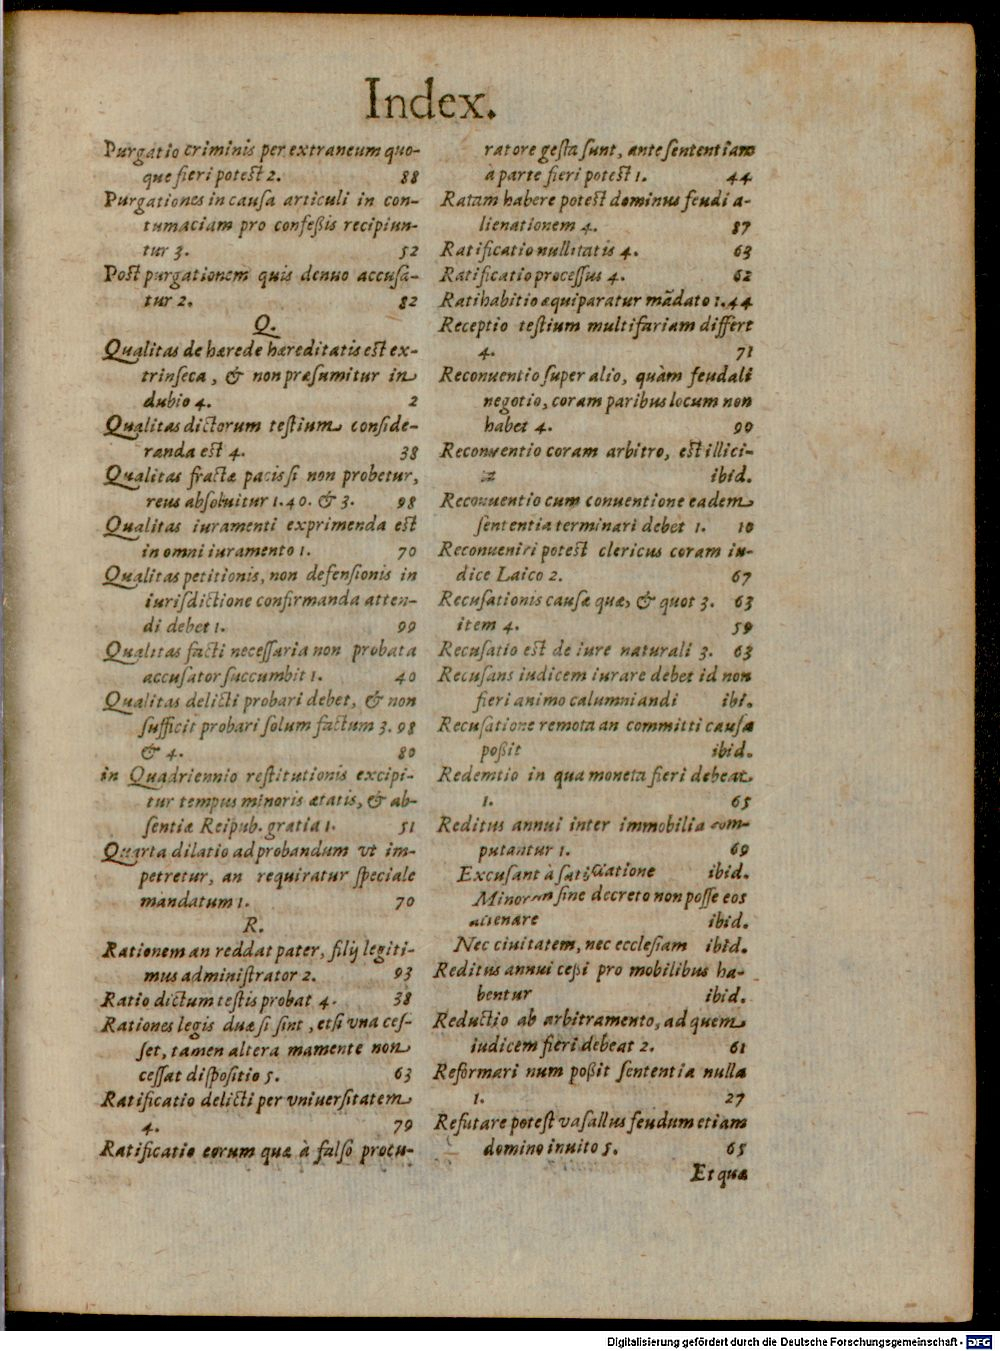 Index.
Purgatio criminis per extraneum quo-
que fieri potest 2. 88
Purgationes in causa articuli in con-
tumaciam pro confeßis recipiun-
tur 3. 52
Post purgationem quis denuo accusa-
tur 2. 82
Q.
Qualitas de hærede hæreditatis est ex-
trinseca, & non præsumitur in
dubio 4. 2
Qualitas dictorum testium conside-
randa est 4. 38
Qualitas fractæ pacis si non probetur,
reus absoluitur 1. 40. & 3. 98
Qualitas iuramenti exprimenda est
in omni iuramento 1. 70
Qualitas petitionis, non defensionis in
iurisdictione confirmanda atten-
di debet 1. 99
Qualitas facti necessaria non probata
accusator succumbit 1. 40
Qualitas delicti probari debet, & non
sufficit probari solum factum 3. 98
& 4. 80
in Quadriennio restitutionis excipi-
tur tempus minoris ætatis, & ab-
sentiæ Reipub. gratia 1. 51
Quarta dilatio ad probandum vt im-
petretur, an requiratur speciale
mandatum 1. 70
R.
Rationem an reddat pater, filij legiti-
mus administrator 2. 93
Ratio dictum testis probat 4. 38
Rationes legis duæ si sint, etsi vna ces-
set, tamen altera mamente non
cessat dispositio 5. 63
Ratificatio delicti per vniuersitatem
4. 79
Ratificatio eorum quæ à falso procu-
ratore gesta sunt, ante sententiam
à parte fieri potest 1. 44
Ratam habere potest dominus feudi a-
lienationem 4. 87
Ratificatio nullitatis 4. 63
Ratificatio processus 4. 62
Ratihabitio æquiparatur mãdato 1. 44
Receptio testium multifariam differt
4. 71
Reconuentio super alio, quàm feudali
negotio, coram paribus locum non
habet 4. 90
Reconuentio coram arbitro, est illici-
ibid.
Reconuentio cum conuentione eadem
sententia terminari debet 1. 10
Reconueniri potest clericus coram iu-
dice Laico 2. 67
Recusationis causæ quæ, & quot 3. 63
item 4. 59
Recusatio est de iure naturali 3. 63
Recusans iudicem iurare debet id non
fieri animo calumniandi ibi.
Recusatione remota an committi causa
poßit ibid.
Redemtio in qua moneta fieri debeat
1. 65
Reditus annui inter immobilia com-
putantur 1. 69
Excusant à satisdatione ibid.
Minorem sine decreto non posse eos
alienare ibid.
Nec ciuitatem, nec ecclesiam ibid.
Reditus annui ceßi pro mobilibus ha-
bentur ibid.
Reductio ab arbitramento, ad quem
iudicem fieri debeat 2. 61
Reformari num poßit sententia nulla
1. 27
Refutare potest vasallus feudum etiam
domino inuito 5. 65
Et quæ
Digitalisierung gefördert durch die Deutsche Forschungsgemeinschaft - DFG